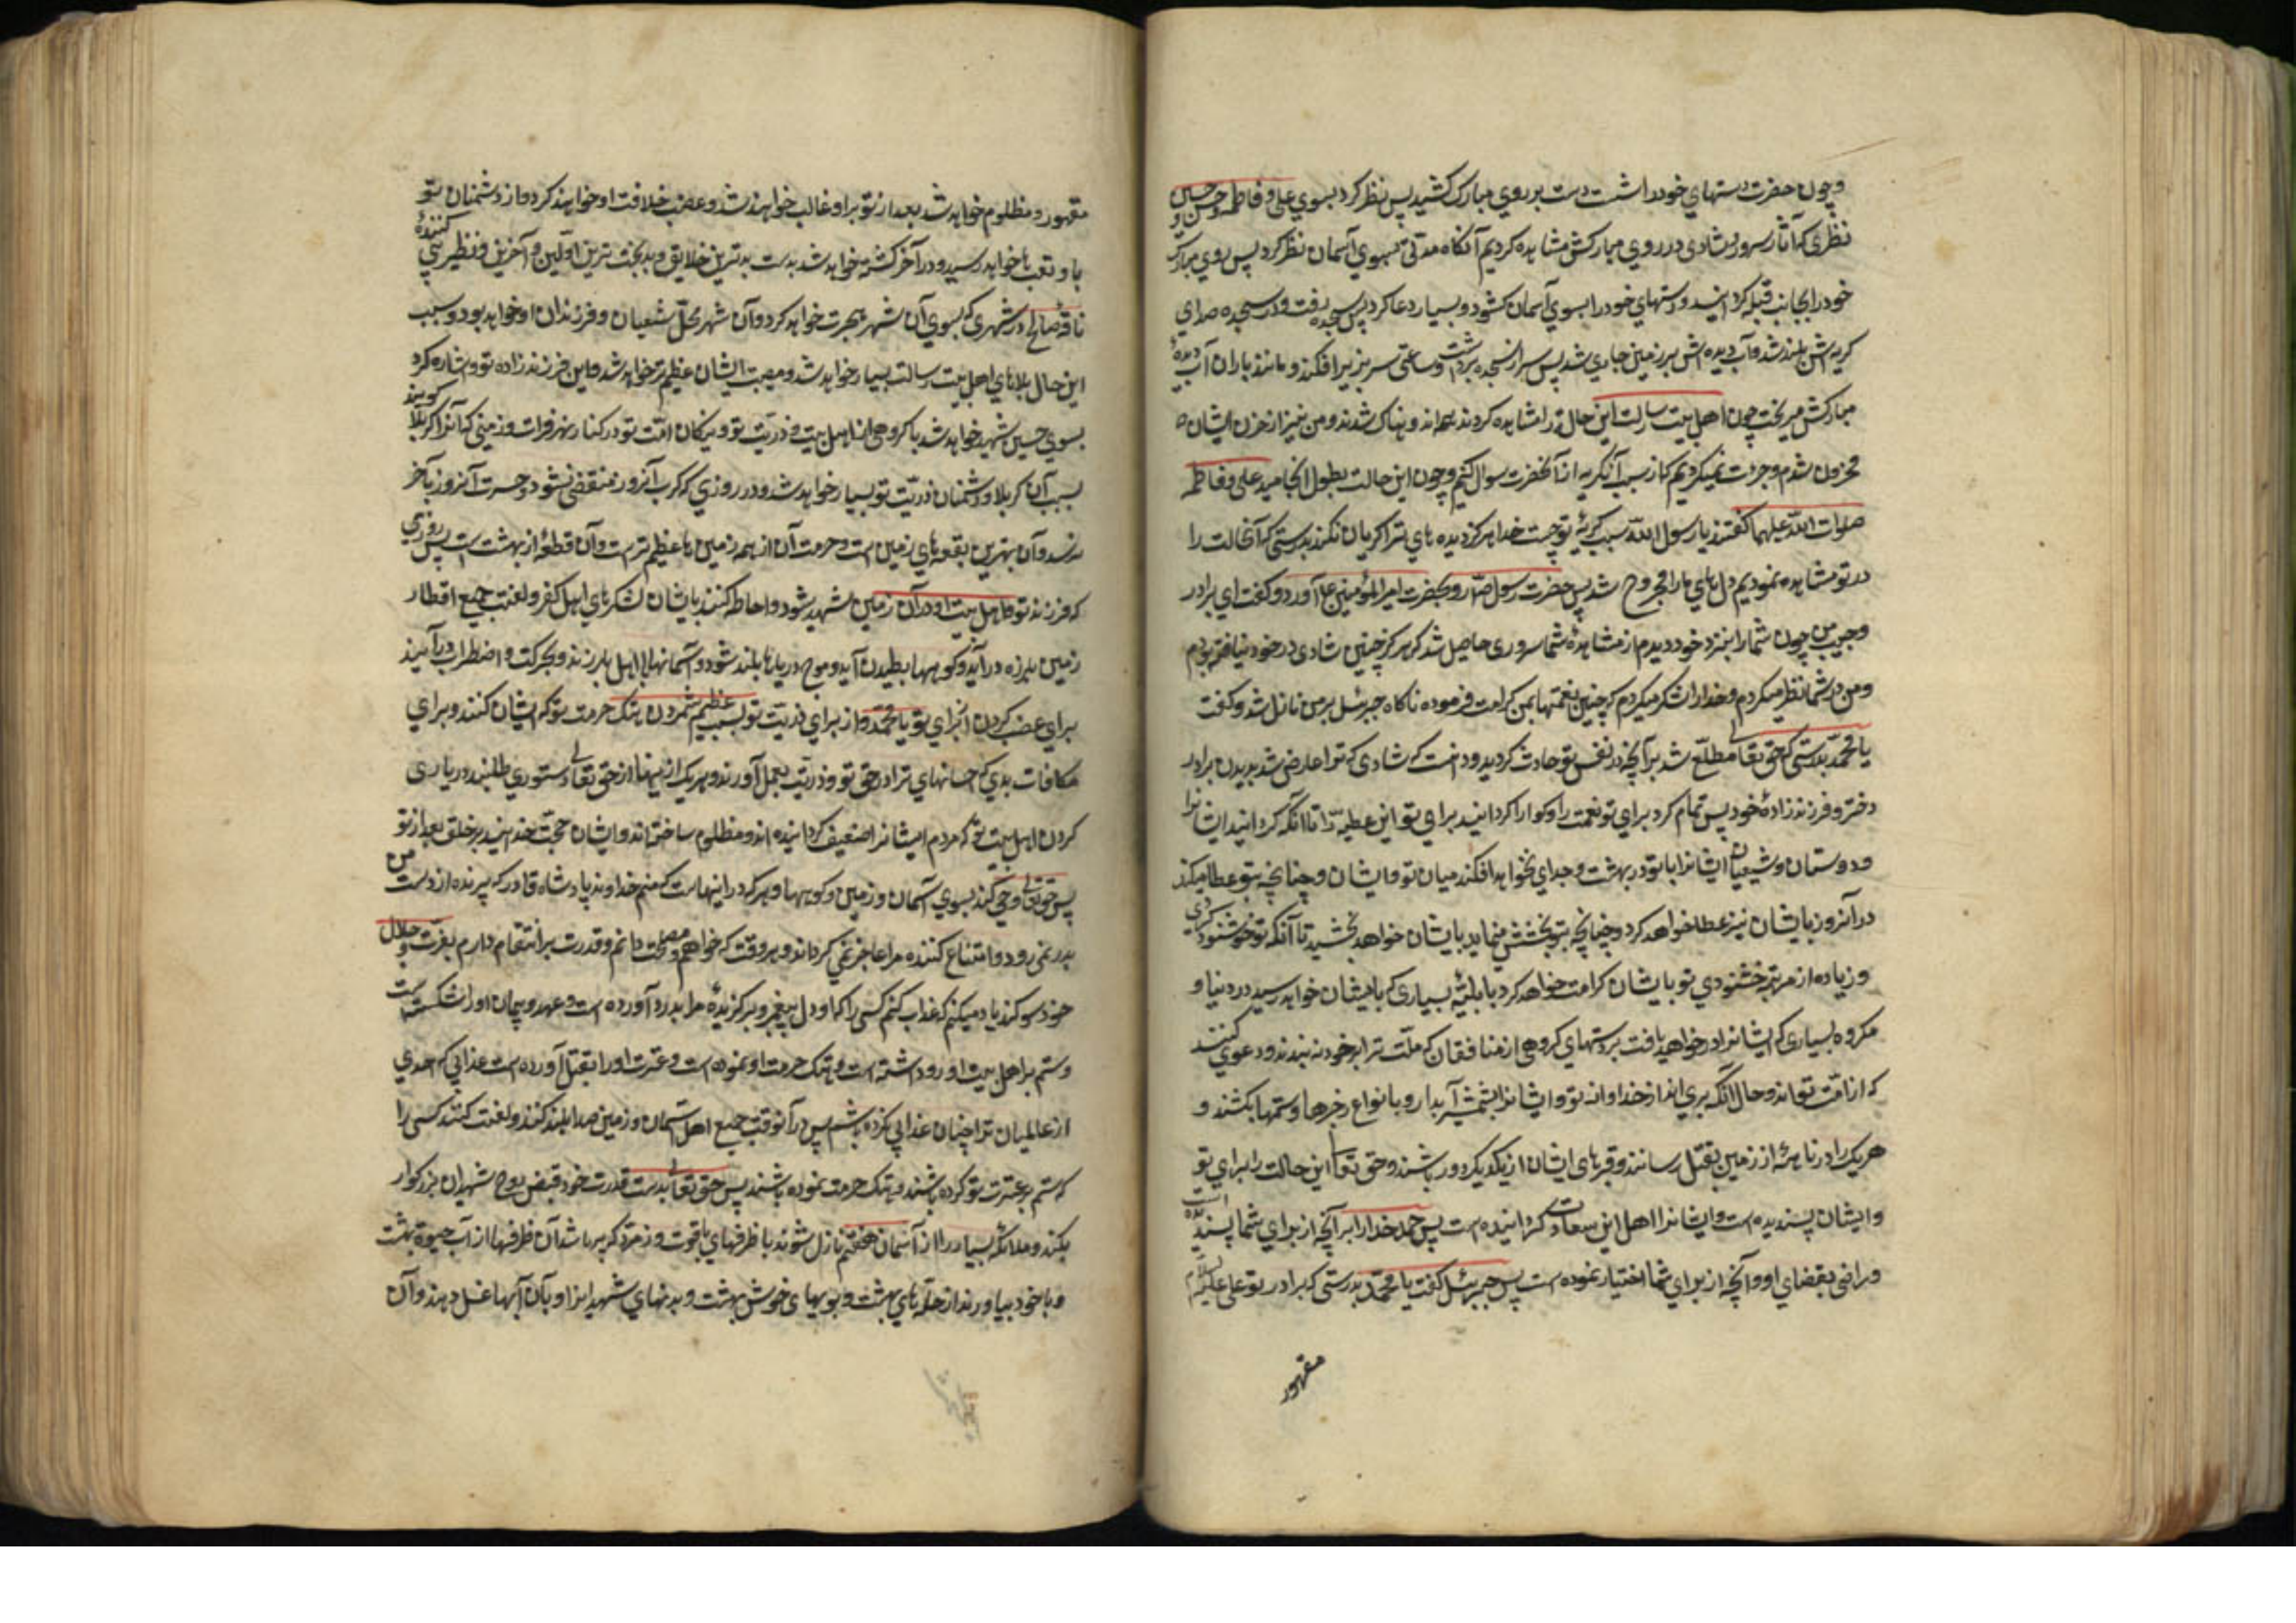 وچون حضرت دستهای خود داشت دست بر روی مبارک کشید پس نظر کرد بسوی علی و فاطمه و حسن و حسین
نظری که آثار سرور و شادی در روی مبارکش مشاهده کردیم آنگاه مدتی بسوی آسمان نظر کرد پس روی مبارک
خود را بجانب قبله گردانید و دستهای خود را بسوی آسمان کشود و بسیار دعا کرد پس بسجده رفت و در سجده صدای
گریه اش بلند شد و آب دیده اش بر زمین جاری شد پس سر از سجده برداشت و ساعتی سر بزیر افکند و مانند باران آب دیدهٔ
مبارکش میریخت چون اهل بیت رسالت این حال را مشاهده کردند همه اندوهناک شدند و من نیز از حزن ایشان
محزون شدم و جرئت نمیکردیم که از سبب آن گریه از آنحضرت سوال کنیم و چون این حالت بطول انجامید علی و فاطمه
صلوات الله علیهما گفتند یا رسول الله سبب گریهٔ تو چیست خدا هرگز دیده های ترا گریان نکند بدرستی که آنحالت را
در تو مشاهده نمودیم دل های ما را مجروح شد پس حضرت رسول ص رو بحضرت امیر المؤمنین ع آورد و گفت ای برادر
و حبیب من چون شما را بنزد خود دیدم از مشاهدهٔ شما سروری حاصل شد که هرگز چنین شادی در خود نیافته بودم
و من در شما نظر میکردم و خدا را شکر میکردم که چنین نعمتها بمن کرامت فرموده ناگاه جبرئیل بر من نازل شد و گفت
یا محمد بدرستی که حق تعالی مطلع شد بر آنچه در نفس تو حادث گردید و دانست که شادی که ترا عارض شد بدیدن برادر
دختر و فرزند زادهٔ خود پس تمام کرد برای تو نعمت را و گوارا گردانید برای تو این عطیه را تا آنکه گردانید ایشانرا
و دوستان و شیعیان ایشانرا با تو در بهشت و جدای نخواهد افکند میان تو و ایشان و چنانچه بتو عطا میکند
در آنروز بایشان نیز عطا خواهد کرد و چنانچه بتو بخشش مینماید بایشان خواهد بخشید تا آنکه تو خوشنود گردی
و زیاده از مرتبهٔ خشنودی تو بایشان کرامت خواهد کرد با بلیهٔ بسیاری که بایشان خواهد رسید در دنیا و
مکروه بسیاری که ایشانرا در خواهد یافت بدستهای گروهی از منافقان که ملت ترا بر خود بندند و دعوی کنند
که از امت تو اند و حال آنکه بری اند از خدا و از تو و ایشانرا بشمشیر آبدار و بانواع زجرها و ستمها بکشند و
هریک را در ناحیهٔ از زمین بقتل رسانند و قبرهای ایشان از یکدیگر دور باشند و حق تعالی این حالت را برای تو
و ایشان پسندیده است و ایشانرا اهل این سعادت گردانیده است پس حمد خدا را بر آنچه از برای شما پسندیده است
و راضی بقضای او و آنچه از برای شما اختیار نموده است پس جبرئیل گفت یا محمد بدرستی که برادر تو علی علیه السلام
مقهور
مقهور و مظلوم خواهد شد بعد از تو بر او غالب خواهند شد و غصب خلافت او خواهند کرد و از دشمنان تو
باو تعب ها خواهد رسید و در آخر کشته خواهد شد بدست بدترین خلایق و بدبخت ترین اولین و آخرین و نظیر پی کنندهٔ
ناقهٔ صالح در شهری که بسوی آن شهر هجرت خواهد کرد و آن شهر محل شیعیان و فرزندان او خواهد بود و بسبب
این حال بلاهای اهل بیت رسالت بسیار خواهد شد و مصیبت ایشان عظیم تر خواهد شد و این فرزند زاده تو و اشاره کرد
بسوی حسین شهید خواهد شد با گروهی از اهل بیت و ذریت تو و نیکان امت تو در کنار نهر فرات و زمینی که آنرا کربلا گویند
بسبب آن کرب و بلا و دشمنان ذریت تو بسیار خواهد شد و در روزی که کرب آنروز منقضی نشود و حسرت آنروز بآخر
نرسد و آن بهترین بقعه های زمین است و حرمت آن از همه زمین ها عظیم تر است و آن قطعهٔ از بهشت است پس روزی
که فرزند تو و اهل بیت او در آن زمین شهید شود و احاطه کنند بایشان لشکرهای اهل کفر و لعنت جمیع اقطار
زمین بلرزه در آید و کوهها بطپیدن آید و موج دریاها بلند شود و آسمانها با اهل بلرزند و بحرکت و اضطراب در آیند
برای غضب کردن از برای تو یا محمد و از برای ذریت تو بسبب عظیم شمردن هتک حرمت تو که ایشان کنند و برای
مکافات بدی که احسانهای ترا در حق تو و ذریت بعمل آورند و هریک از اینها از حق تعالی دستوری طلبند در یاری
کردن اهل بیت تو که مردم ایشانرا ضعیف گردانیده اند و مظلوم ساخته اند و ایشان حجت خدایند بر خلق بعد از تو
پس حق تعالی وحی کند بسوی آسمان و زمین و کوهها و هرکه در اینهاست که منم خداوند پادشاه قادر که پرنده از دست من
بدر نمی رود و امتناع کننده مرا عاجز نمی گرداند و هر وقت که خواهم و مصلحت دانم و قدرت بر انتقام دارم بعزت و جلال
خود سوگند یاد میکنم که عذاب کنم کسی را که او دل پیغمبر و برگزیدهٔ مرا بدرد آورده است و عهد و پیمان او را شکسته است
و ستم بر اهل بیت او روا داشته است و هتک حرمت او نموده است و عترت او را بقتل آورده است عذابی که احدی
از عالمیان را چنان عذابی نکرده باشم پس در آنوقت جمیع اهل آسمان و زمین صدا بلند کنند و لعنت کنند کسی را
که ستم بر عترت تو کرده باشند و هتک حرمت نموده باشند پس حق تعالی بدست قدرت خود قبض روح شهیدان بزرگوار
بکند و ملائکه بسیار را از آسمان هفتم نازل شوند با ظرفهای یاقوت و زمرد که پر باشد آن ظرفها از آب حیوة بهشت
و با خود بیاورند از حله های بهشت و بویهای خوش بهشت و بدنهای شهدا را و بآن آبها غسل دهند و آن